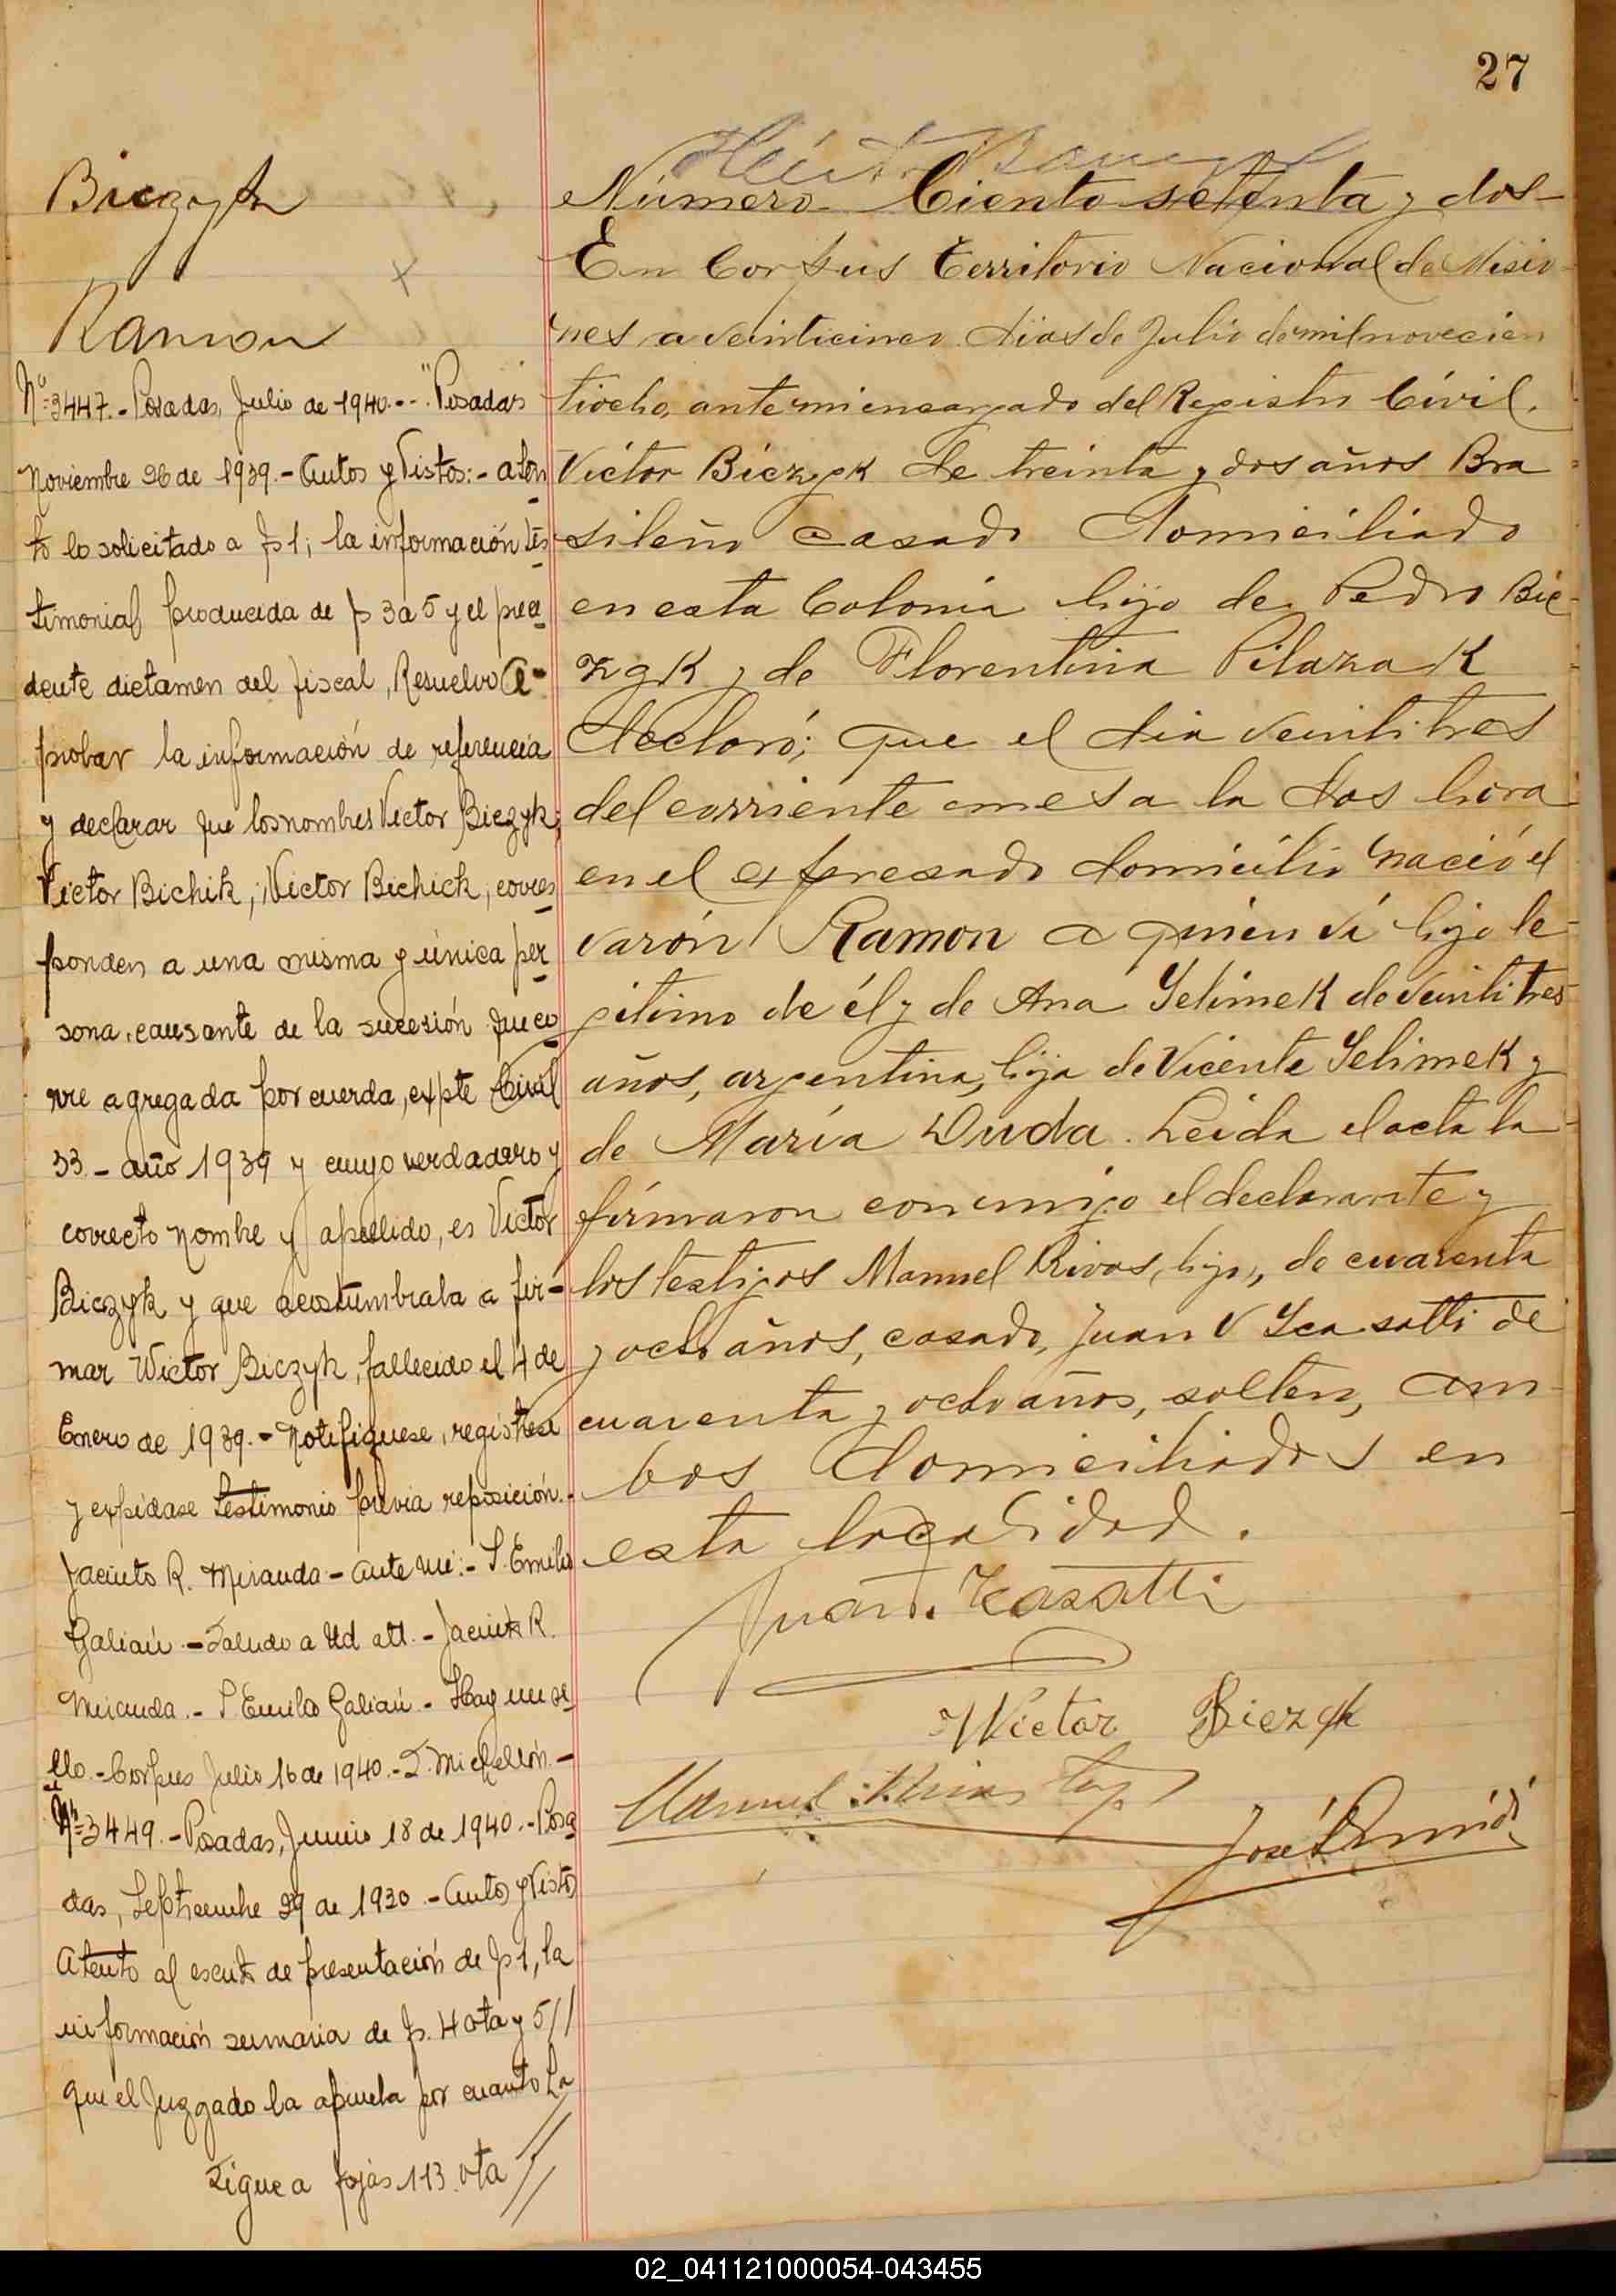 27
Biczyk
Ramon
Nº 3447.- Posadas, Julio de 1940.-- "Posadas
Noviembre 26 de 1939.- Autos y Vistos:- aten
to lo solicitado a fs 1; la información tes
timonial producida de fs 3 a 5 y el prece
dente dictamen del fiscal, Resuelvo A-
probar la información de referencia
y declarar que los nombres Victor Biczyk;
Victor Bichik; Victor Bichick, corres
ponden a una misma y única per
sona, causante de la sucesión que co
rre agregada por cuerda, expte Civil
33.- año 1939 y cuyo verdadero y
correcto nombre y apellido, es Victor
Biczyk y que acostumbraba a fir-
mar Wictor Biczyk, fallecido el 4 de
Enero de 1939.- Notifiquese, registrese
y expídase testimonio previa reposición.-
Jacinto R. Miranda- ante mi:- S. Emilio
Galiań.- Saludo a Ud att.- Jacinto R.
Miranda.- S Emilio Galiań.- Hay un se
llo.- Corpus Julio 16 de 1940.-
Nº 3449.- Posadas, Junio 18 de 1940.- Posa
das, Septiembre 29 de 1930.- Autos y Vistos
Atento al escrito de presentación de fs 1, la
información sumaria de fs. 4 vta y 5//
que el Juzgado la aprueba por cuanto La
Sigue a fojas 113 vta //
Número Ciento setenta y dos-
En Corpus Territorio Nacional de Misio
nes a veinticinco dias de Julio de mil novecien
tiocho, ante mi encargado del Registro Civil,
Victor Biczyk de treinta y dos años Bra
sileño casado domiciliado
en esta Colonia hijo de Pedro Bic-
zyk y de Florentina Pilazak
declaró; que el dia veintitres
del corriente mes a la dos hora
en el expresado domicilio nació el
varón Ramon a quien ví hijo le-
gitimo de él y de Ana Yelimek de veintitres
años, argentina, hija de Vicente Yelimek y
de María Duda. Leida el acta la
firmaron conmigo el declarante y
los testigos Manuel Rivas, hijo, de cuarenta
y ocho años, casado, Juan V Scasatti de
cuarenta y ocho años, soltero, am-
bos domiciliados en
esta localidad.
Wictor Biczyk
02_041121000054-043455